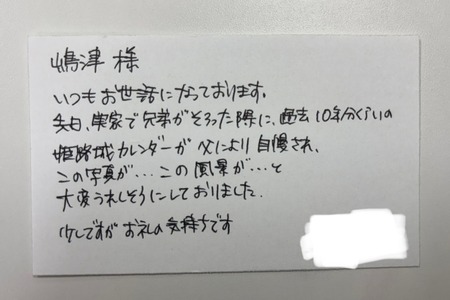 嶋津 様
いつもお世話になっております。
先日、実家で兄弟がそろった際に、過去10年分くらいの
姫路城カレンダーが 父により 自慢され、
この写真が…この 風景が…と
大変うれしそうにしておりました.
少しですが お礼の気持ちです